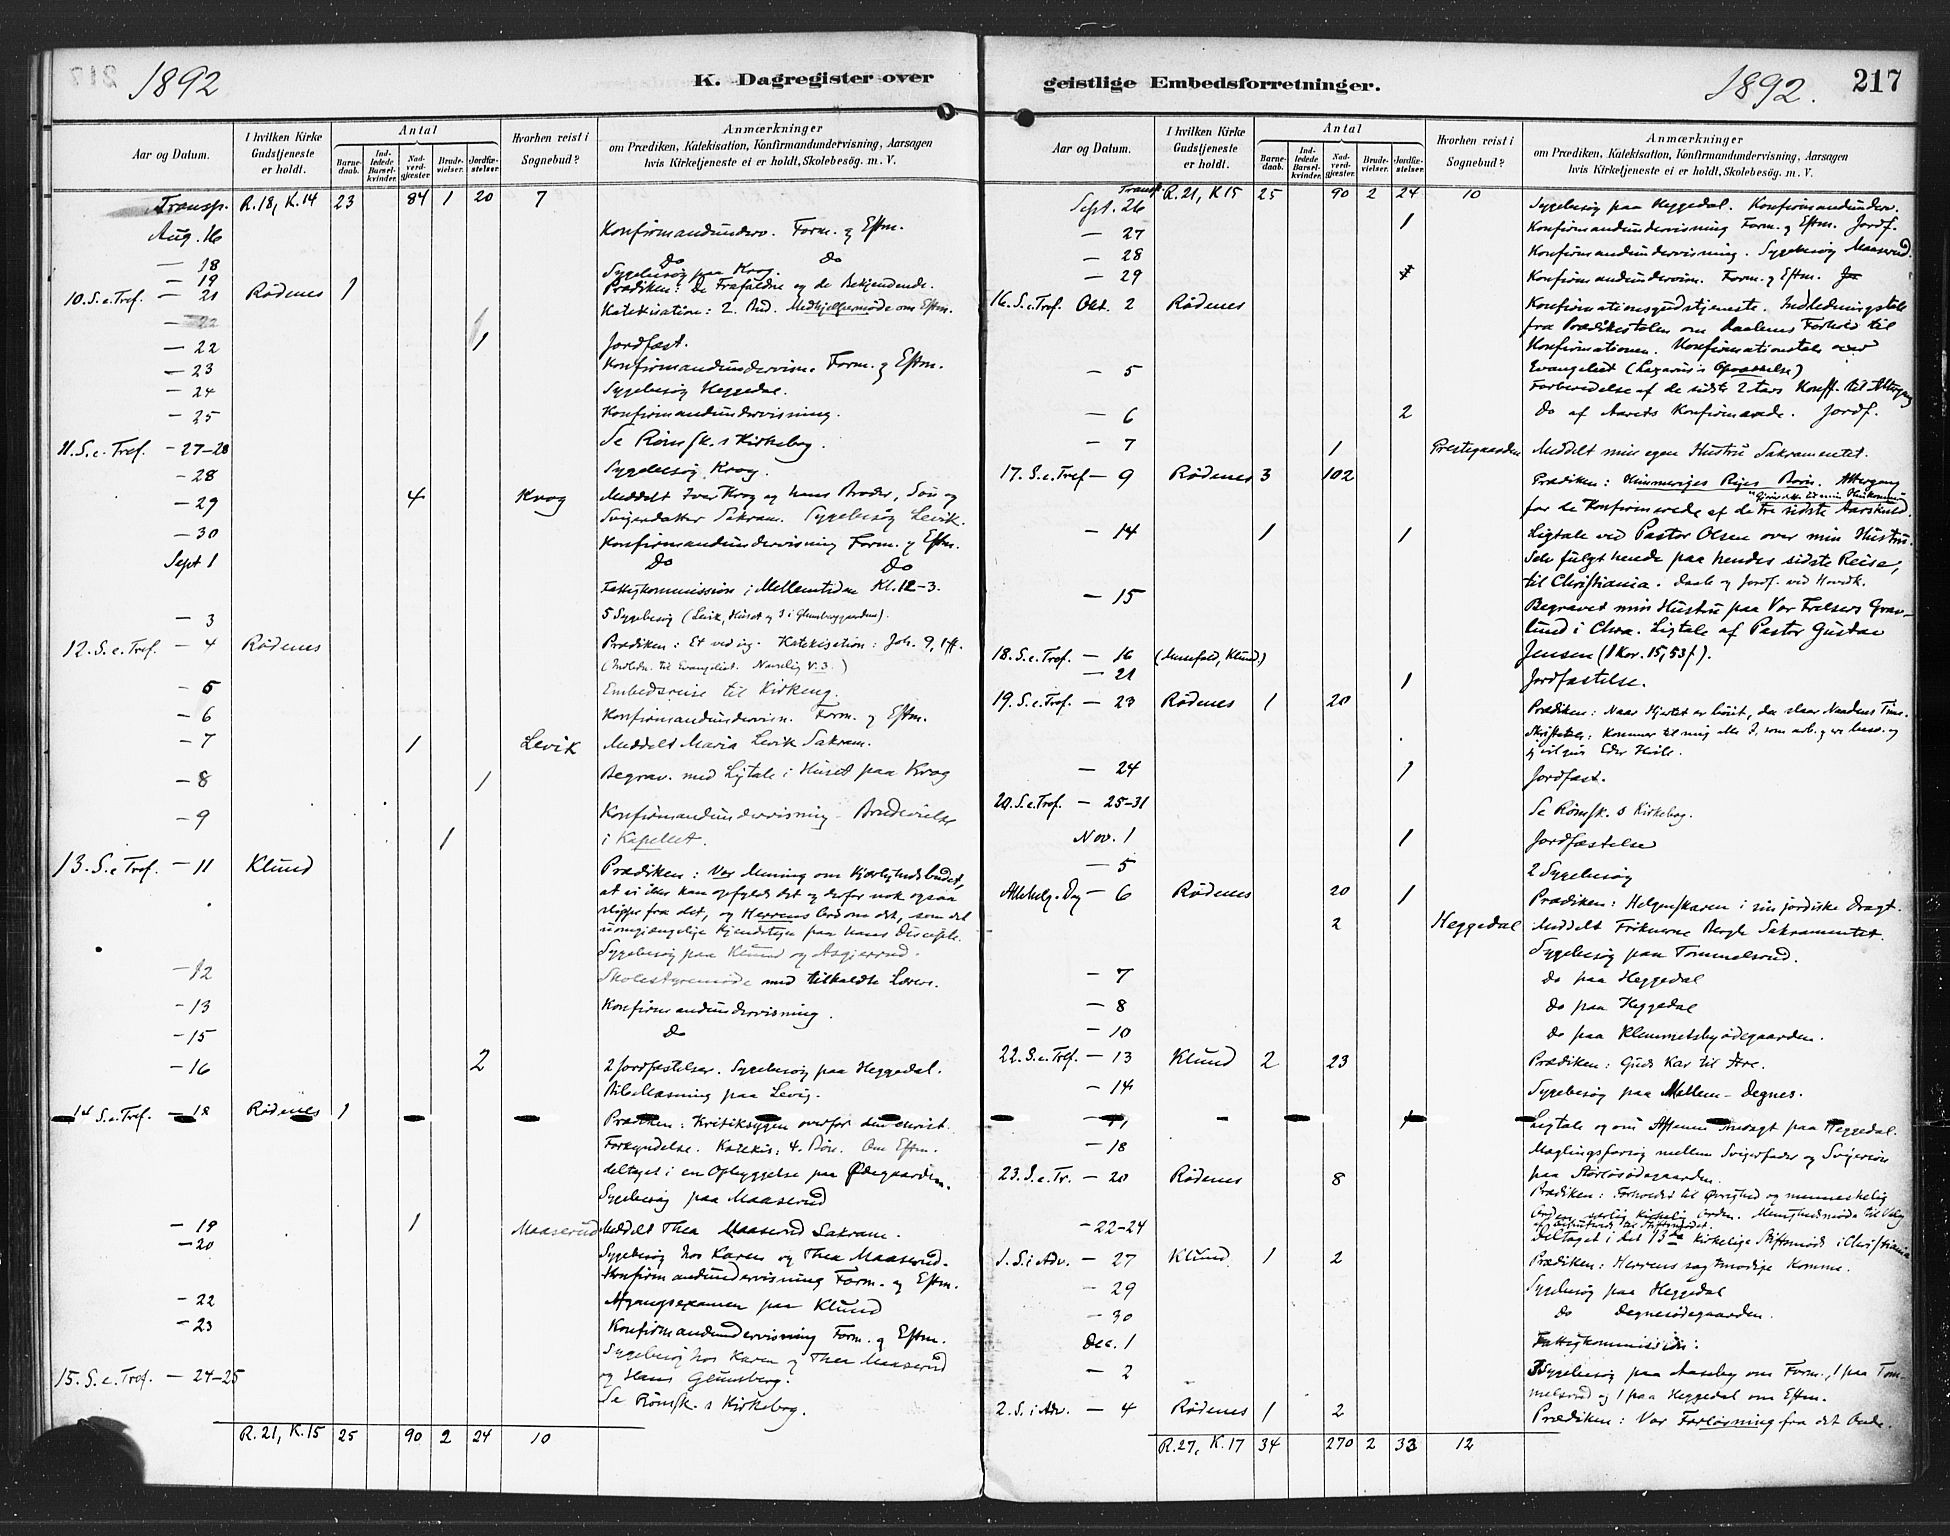 1892
K. Dagregister over
Aar og Datum.
I hvilken Kirke Gudstjeneste er holdt.
Antal
Barnedaab.
Indledede Barselkvinder.
Nadverdgjester.
Brudevielser.
Jordfæstelser.
Hvorhen reist i Sognebud?
Anmærkninger
om Prædiken, Katekisation, Konfirmandundervisning, Aarsagen
hvis Kirketjeneste ei er holdt, Skolebesög. m. V.
Transp. R.18, K.14 23 84 1 20 7
Aug. 16 Konfirmandunderv. Form. og Eftm.
— 18 Do Do
— 19 Sygebesøg paa Krog.
10. S. e. Tref. — 21 Rødenes 1 Prædiken: De Frafaldne og de Bekjendende.
— 22 Katekisation: 2. Bud. Medhjælpermøde om Eftm.
— 22 1 Jordfæst.
— 23 Konfirmandundervisn. Form. og Eftm.
— 24 Sygebesøg Heggedal.
— 25 Konfirmandundervisning.
11. S. e. Tref. — 27-28 Se Rømsk. s Kirkebog.
— 28 Sygebesøg Krog.
— 29 4 Krog Meddelt Iver Krog og hans Broder, Søn og
Svigerdatter Sakram. Sygebesøg Levik.
— 30 Konfirmandundervisning Form. og Eftm.
Sept 1 Do Do
Fattigkommission i Mellemtiden Kl. 12-3.
— 3 5 Sygebesøg (Levik, Huset og 3 i Glumbæggaarden).
12. S. e. Tref. — 4 Rødenes Prædiken: Et ved jeg. Katekisation: Joh. 9, 1ff.
(Indledn. til Evangeliet. Navnlig V. 3.)
— 5 Embedsreise til Kirkeng.
— 6 Konfirmandundervisn. Form. og Eftm.
— 7 1 Levik Meddelt Maria Levik Sakram.
— 8 1 Begrav. med Ligtale i Huset paa Krog
— 9 Konfirmandundervisning - Brudevielse
1 i Kapellet.
13. S. e Tref. — 11 Klund Prædiken: Vor Mening om Kjærlighedsbudet,
at vi ikke kan opfylde det og derfor nok ogsaa
slippe fra det, og Herrens Ord om det, som det
uomgjængelige Kjendetegn paa hans Disciple.
Sygebesøg paa Klund og Asgjerrud.
— 12 Skolestyremøde med tilkaldte Lærere.
— 13 Konfirmandundervisning.
— 15 Do
— 16 2 2 Jordfæstelser. Sygebesøg paa Heggedal.
Bibellæsning paa Levig.
14 S. e. Tref. — 18 Rødenes 1 Prædiken: Kritiksygen overfor den christ.
Forkyndelse. Katekis: 4. Bøn. Om Eftm.
deltaget i en Opbyggelse paa Ødegaarden.
Sygebesøg paa Maaserud
— 19 1 Maaserud Meddelt Thea Maaserud Sakram.
— 20 Sygebesøg hos Karen og Thea Maaserud.
Konfirmandundervisning Form. og Eftm.
— 22 Afgangsexamen paa Klund
— 23 Konfirmandundervisning Form. og Eftm.
Sygebesøg hos Karen og Thea Maaserud
15. S. e. Tref. — 24-25 og Hans Glumsberg.
Se Rømsk. s Kirkebog.
R. 21, K. 15 25 90 2 24 10
geistlige Embedsforretninger.
1892.
217
Aar og Datum.
I hvilken Kirke Gudstjeneste er holdt.
Antal
Barnedaab.
Indledede Barselkvinder.
Nadvergjester.
Brudevielser.
Jordfæstelser.
Hvorhen reist i Sognebud?
Anmærkninger
om Prædiken, Katekisation, Konfirmandundervisning, Aarsagen
hvis Kirketjeneste ei er holdt, Skolebesög. m. V.
Transp. R. 21, K 15 25 90 2 24 10
Sept. 26 Sygebesøg paa Heggedal. Konfirmandunderv.
— 27 1 Konfirmandundervisning Form. og Eftm. Jordf.
— 28 Konfirmandundervisning. Sygebesøg Maaserud.
— 29 Konfirmandundervisn. Form. og Eftm.
16. S. e. Tref. Okt. 2 Rødenes Konfirmationsgudstjeneste. Indledningstale
fra Prædikestolen om Daabens Forhold til
Konfirmationen. Konfirmationstale over
Evangeliet (Lazarus's Opvækkelse)
— 5 Forberedelse af de sidste 2 Aars Konff. til Altergang
— 6 2 Do af Aarets Konfirmerede. Jordf.
— 7 1 Prestegaarden Meddelt min egen Hustru Sakramentet.
17. S. e. Tref — 9 Rødenes 3 102 Prædiken: Himmeriges Riges Børn. Altergang
for de Konfirmerede af de tre sidste Aarskuld.
— 14 1 1 Ligtale ved Pastor Olsen over min Hustru.
Selv fulgt hende paa hendes sidste Reise,
til Christiania. Daab og Jordf. ved Hovdk.
— 15 Begravet min Hustru paa Vor Frelsers Grav-
lund i Chra. Ligtale af Pastor Gustav
18. S. e. Tref. — 16 (Klund) Jensen (1 Kor. 15, 53f).
— 21 1 Jordfæstelse.
19. S. e. Tref. — 23 Rødenes 1 20 Prædiken: Naar Hjertet er knust, da slaar Naadens Time.
Skriftetale: Kommer til mig alle I, som arb. og ere besv. og
jeg vil give Eder Hvile.
— 24 1 Jordfæst.
20. S. e. Tref. — 25-31 Se Rømsk. s Kirkebog.
Nov. 1 1 Jordfæstelse
— 5 2 Sygebesøg
Allehelg. Dag — 6 Rødenes 20 1 Prædiken: Helgenskaren i sin jordiske Dragt.
2 Heggedal Meddelt Frøknerne Bergh Sakramentet.
Sygebesøg paa Tommelsrud.
— 7 do paa Heggedal
— 8 do paa Heggedal
— 10 do paa Klemmetsbyødegaarden.
22. S. e. Tref. — 13 Klund 2 23 Prædiken: Guds Kar til Ære.
— 14 Sygebesøg paa Mellem-Degnes.
Ligtale og om Aftenen Andagt paa Heggedal.
— 18 Mæglingsforsøg mellem Svigerfader og Svigersøn
23. S. e. Tr. — 20 Rødenes 8 paa Størlsrødegaarden.
Prædiken: Forholdet til Øvrighed og menneskelig
Orden, særlig kirkelig Orden. Menighedsmøde til Valg
— 22-24 Deltaget i det 13de kirkelige Stiftsmøde i Christiania
1. S. i Adv. — 27 Klund 1 2 Prædiken: Herrens sagtmodige Komme.
— 29 Sygebesøg paa Heggedal
— 30 do Degnesødegaarden.
Dec. 1 Fattigkommission.
— 2 Sygebesøg paa Aaseby om Form., 1 paa Tom-
melsrud og 1 paa Heggedal om Eftm.
2. S. i Adv. — 4 Rødenes 1 2 Prædiken: Vor Forløsning fra det Onde.
R. 27, K. 17 34 270 2 33 12